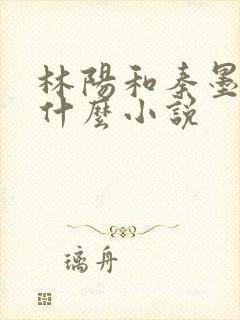 林陽和秦墨
什麼小說
璃舟